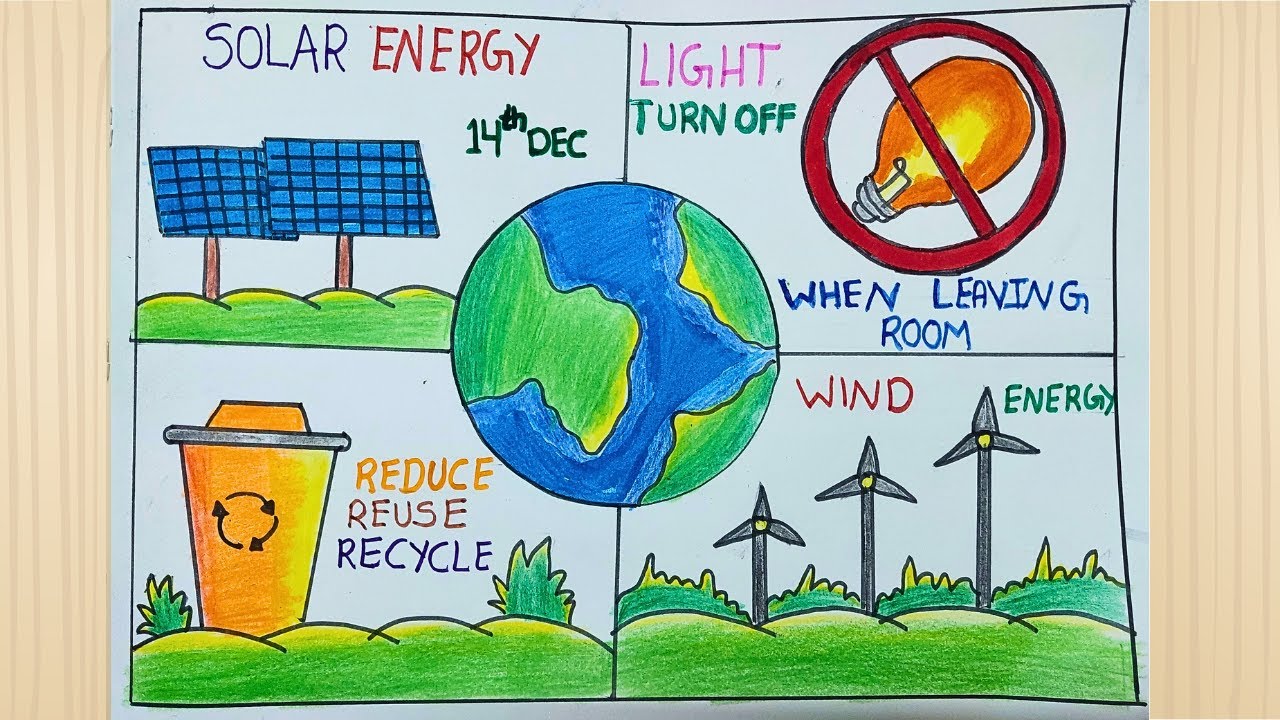 SOLAR ENERGY
14th DEC
LIGHT
TURN OFF
WHEN LEAVING
ROOM
REDUCE
REUSE
RECYCLE
WIND ENERGY